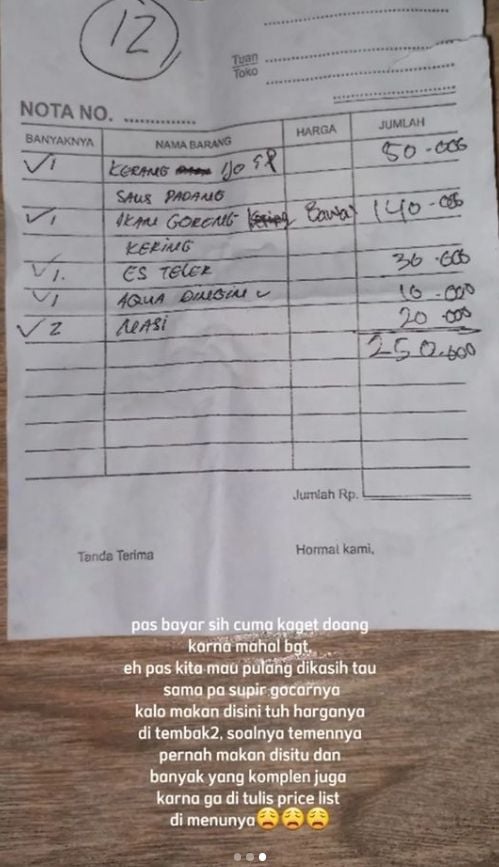 12
Tuan
Toko
NOTA NO.
BANYAKNYA NAMA BARANG HARGA JUMLAH
✓1 KERANG IJO SP 50.000
SAUS PADANG
✓1 IKAN GORENG Kering Bawa 140.000
KERING
✓1. ES TELER 30.000
✓1 AQUA DINGIN ✓ 10.000
✓2 NASI 20.000
250.000
Jumlah Rp.
Tanda Terima Hormat kami,
pas bayar sih cuma kaget doang
karna mahal bgt,
eh pas kita mau pulang dikasih tau
sama pa supir gocarnya
kalo makan disini tuh harganya
di tembak2, soalnya temennya
pernah makan disitu dan
banyak yang komplen juga
karna ga di tulis price list
di menunya😩😩😩